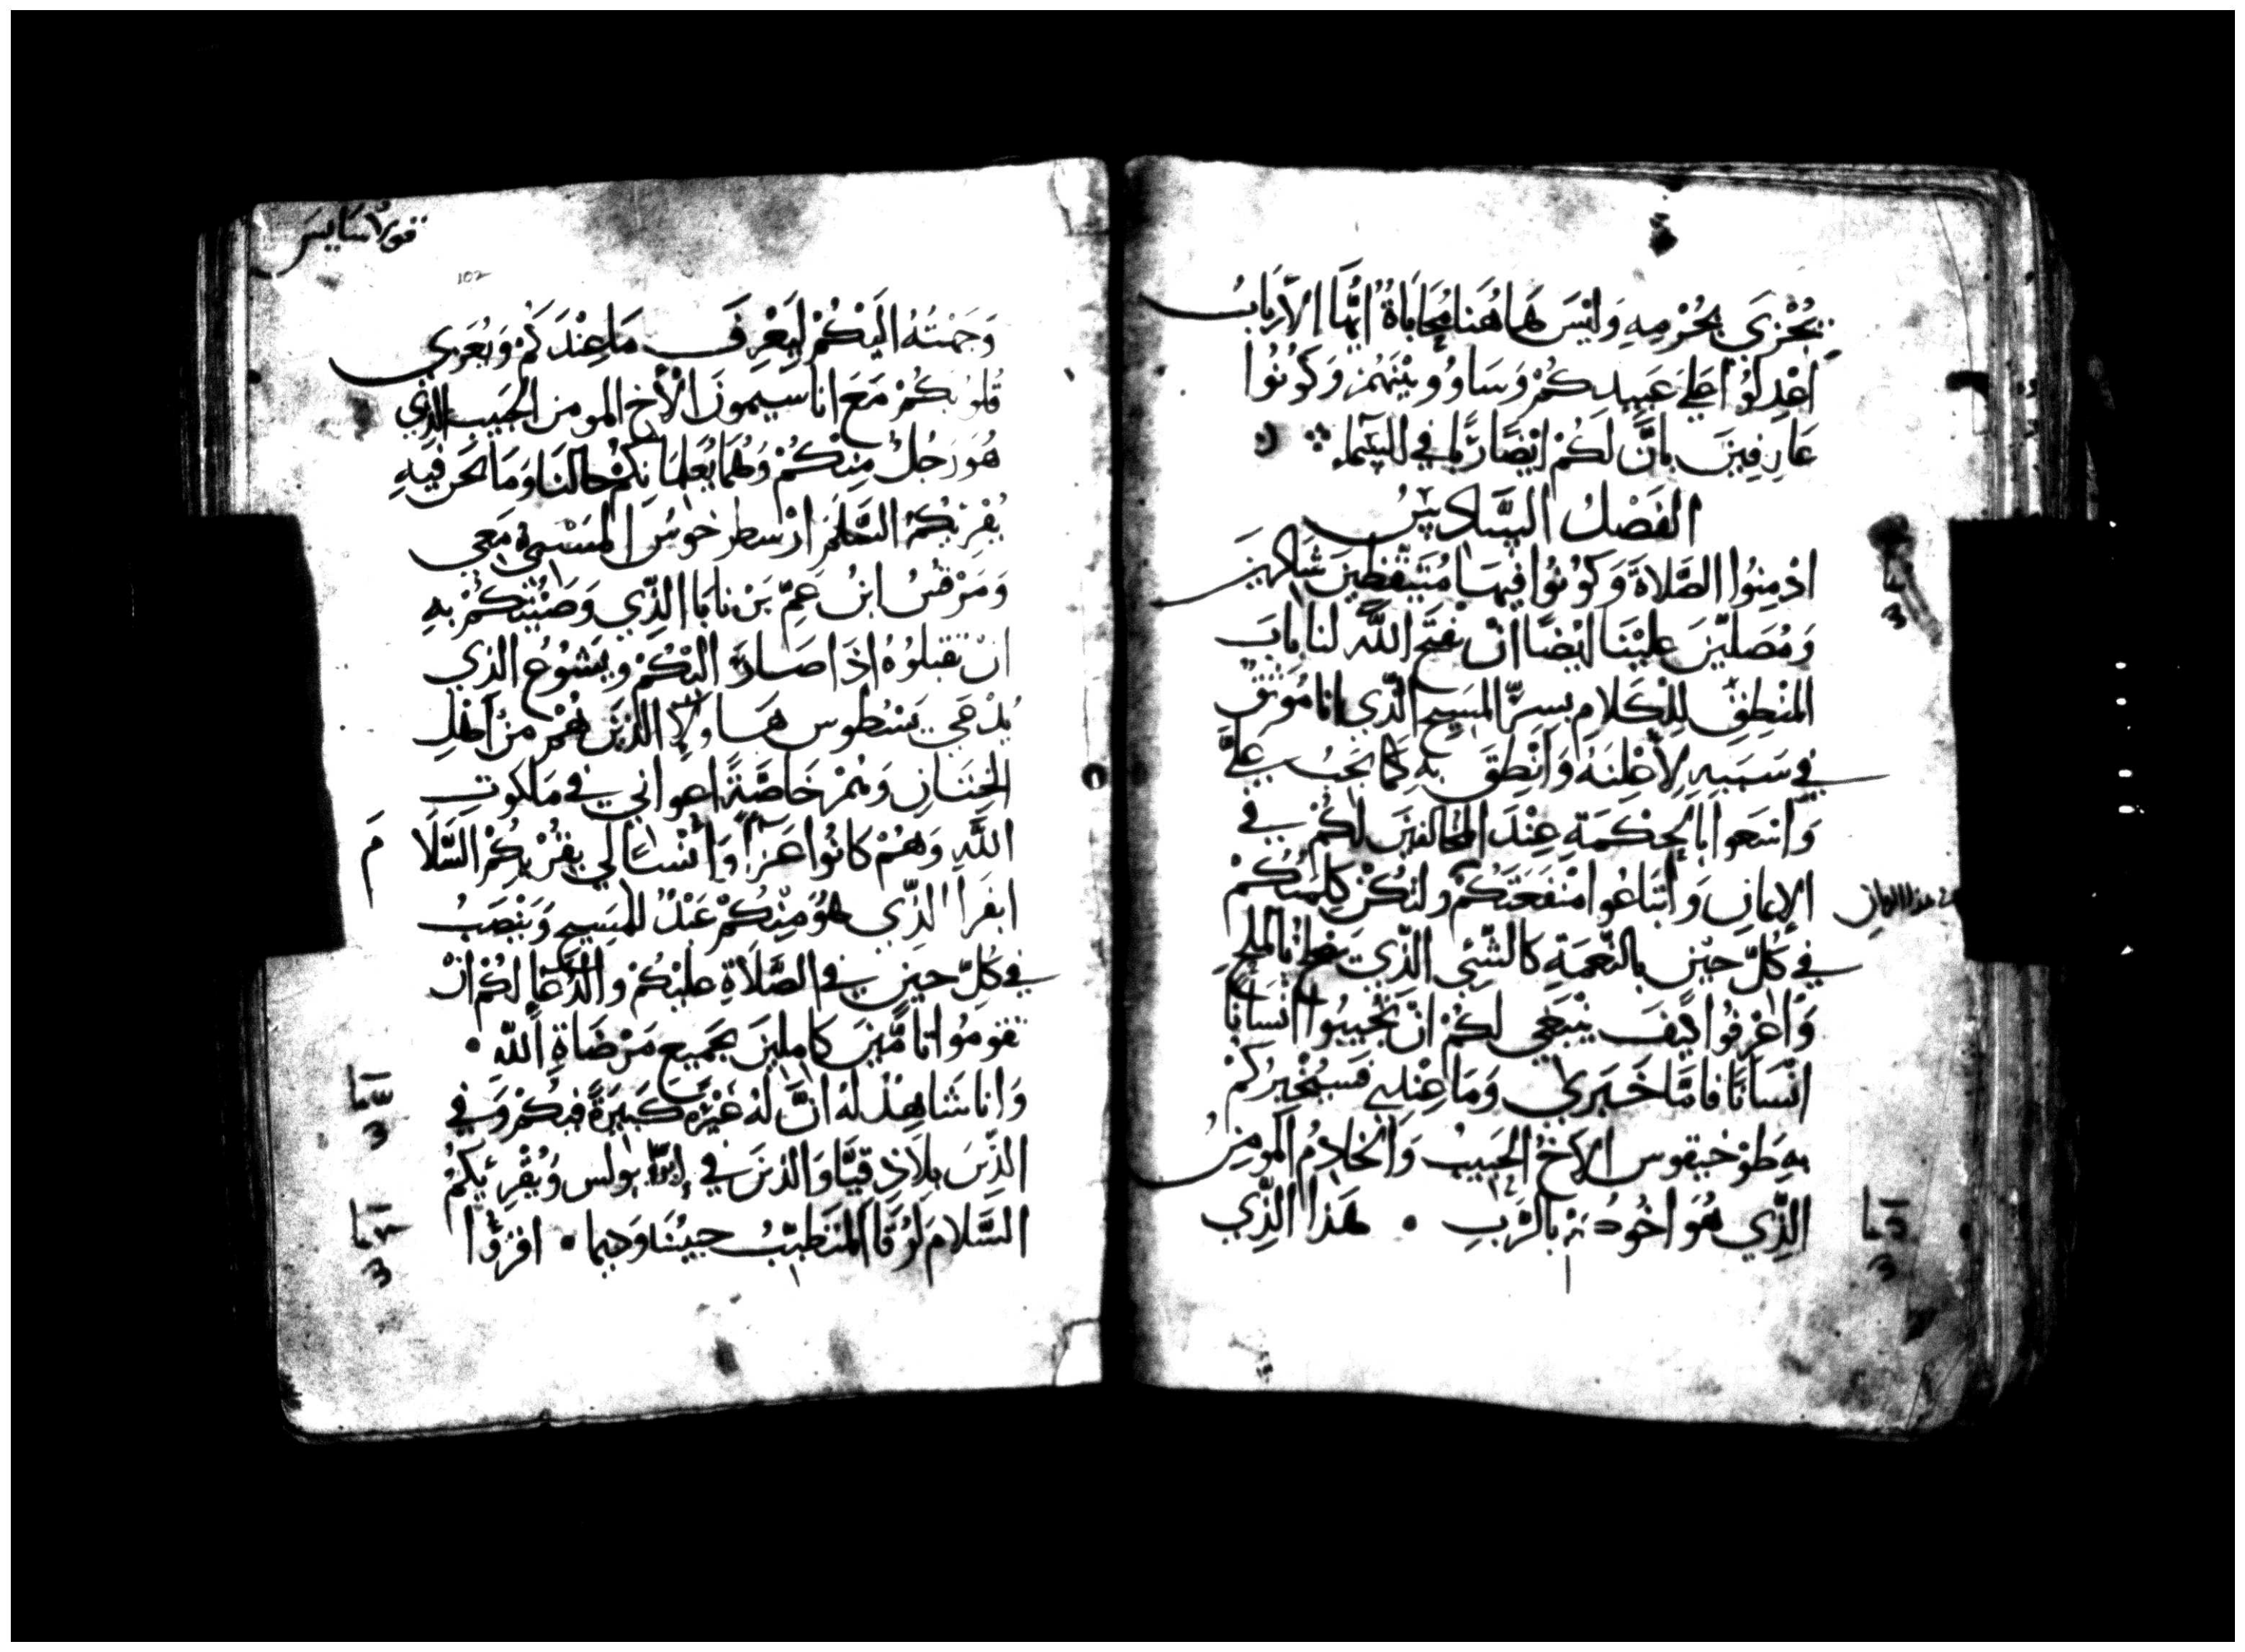 يُجْزَى بجُرْمِهِ وَلَيْسَ هَاهُنَا مُحَابَاةُ ايُّهَا الاَرْبَابُ
اعْدِلوُا عَلَى عَبِيدِكُمْ وَسَاوُوا بيْنَهُمْ وَكُونُوا
عَارِفِينَ بِانَّ لَكُمْ ايْضًا رَبًّا فِي السَّمَاءِ
الفَصْلُ السَّادِسُ
ادْمِنُوا الصَّلاةَ وَكُونُوا فِيهَا مُتَيَقِّظِينَ شَاكِرِينَ
وَمُصَلِّيْنَ عَلَيْنَا ايْضًا انْ يَفْتَحَ اللَّه لنا بَابَ
المَنْطِقِ لِلْكَلامِ بسِرِّ المَسِيحِ الَّذِي انا مُوَثَّقٌ
فِي سَبَبِهِ لاُعْلِنَهُ وَانْطِقَ بِهِ كَمَا يَجِبُ عَلَيَّ
وَاسْعَوا بالْحِكْمَةِ عِنْدَ المخالفِينَ لَكُمْ فِي
الإيمَانِ وَابْتَاعُوا مَنْفَعَتَكُمْ وَلتكُنْ كَلِمَتُكُمْ
فِي كُلِّ حِيْنٍ بالنِّعْمَةِ كالشَّيْ الَّذِي بالملحِ
وَاعْرِفُوا كَيْفَ يَنْبَغِي لَكُمْ انْ تُجِيبُوا انْسَانًا
انْسَانًا فَامَّا خَبَرِي وَمَا عِنْدِي فَسَيُخْبِرُكُمْ
بِهِ طَوْخِيقوس الاَخُ الحَبِيبُ وَالخَادِمُ المُومِنُ
الَّذِي هُوَ اخُونَا بالرَّبِّ • هَذَا الَّذِي
قولاسايس
102
وَجَّهْتُهُ الَيْكُمْ لِيَعْرِفَ مَا عِنْدَكُمْ وَيُعَزِّي
قُلوُبَكُمْ مَعَ اناسيمونَ الاَخِ المومنِ الحَبِيبِ الذِي
هُوَ رَجُلٌ مِنْكُمْ وَهُمَا يُعْلِمَانِكُمْ حالنَا وَمَا نحْنُ فِيهِ
يُقْرِيكُمُ السَّلمَ ارْسطرخوسُ المَسْبِي مَعِي
وَمَرْقسُ ابْنُ عَمِّ بَرْنابَا الَّذِي وَصَّيْتُكُمْ بِهِ
انْ تَقْبَلُوهُ اذَا صَارَ الَيْكُمْ وَيَشُوُعُ الذِي
يُدْعَي يَسْطوس هَاوُلا الَّذِينَ هُمْ مِنْ اَهْلِ
الخِتَانِ وَهُمْ خَاصَّةً اعواني فِي مَلَكوتِ
اللَّهِ وَهُمْ كَانُوا عَزَآءً لِي يُقْرِيكُمُ السَّلاَ
مَ
ابَفْرَا الَّذِي هُوَ مِنْكُمْ عَبْدٌ للمَسِيحِ وَيَنْصَبُ
فِي كُلِّ حِينٍ فِي الصَّلاَةِ عَلَيْكُمْ وَالدُّعَا لَكُمْ انْ
تقومُوا تَامِّيْنَ كَامِلِينَ بجَمِيعِ مَرْضَاةِ اللَّهِ •
وَانا شَاهِدٌ لَهُ انَّ لَهُ غَيْرَةً كَبِيرَةً فِيكُمْ وَفِي
الَّذِينَ بِلاَذِقِيَّا وَالذِينَ فِي بُولس وَيُقْرِيكُمُ
السَّلامَ لُوقَا المُتَطَبِّبُ حَبِيبُنَا وَدِيما • اقْرَوُا